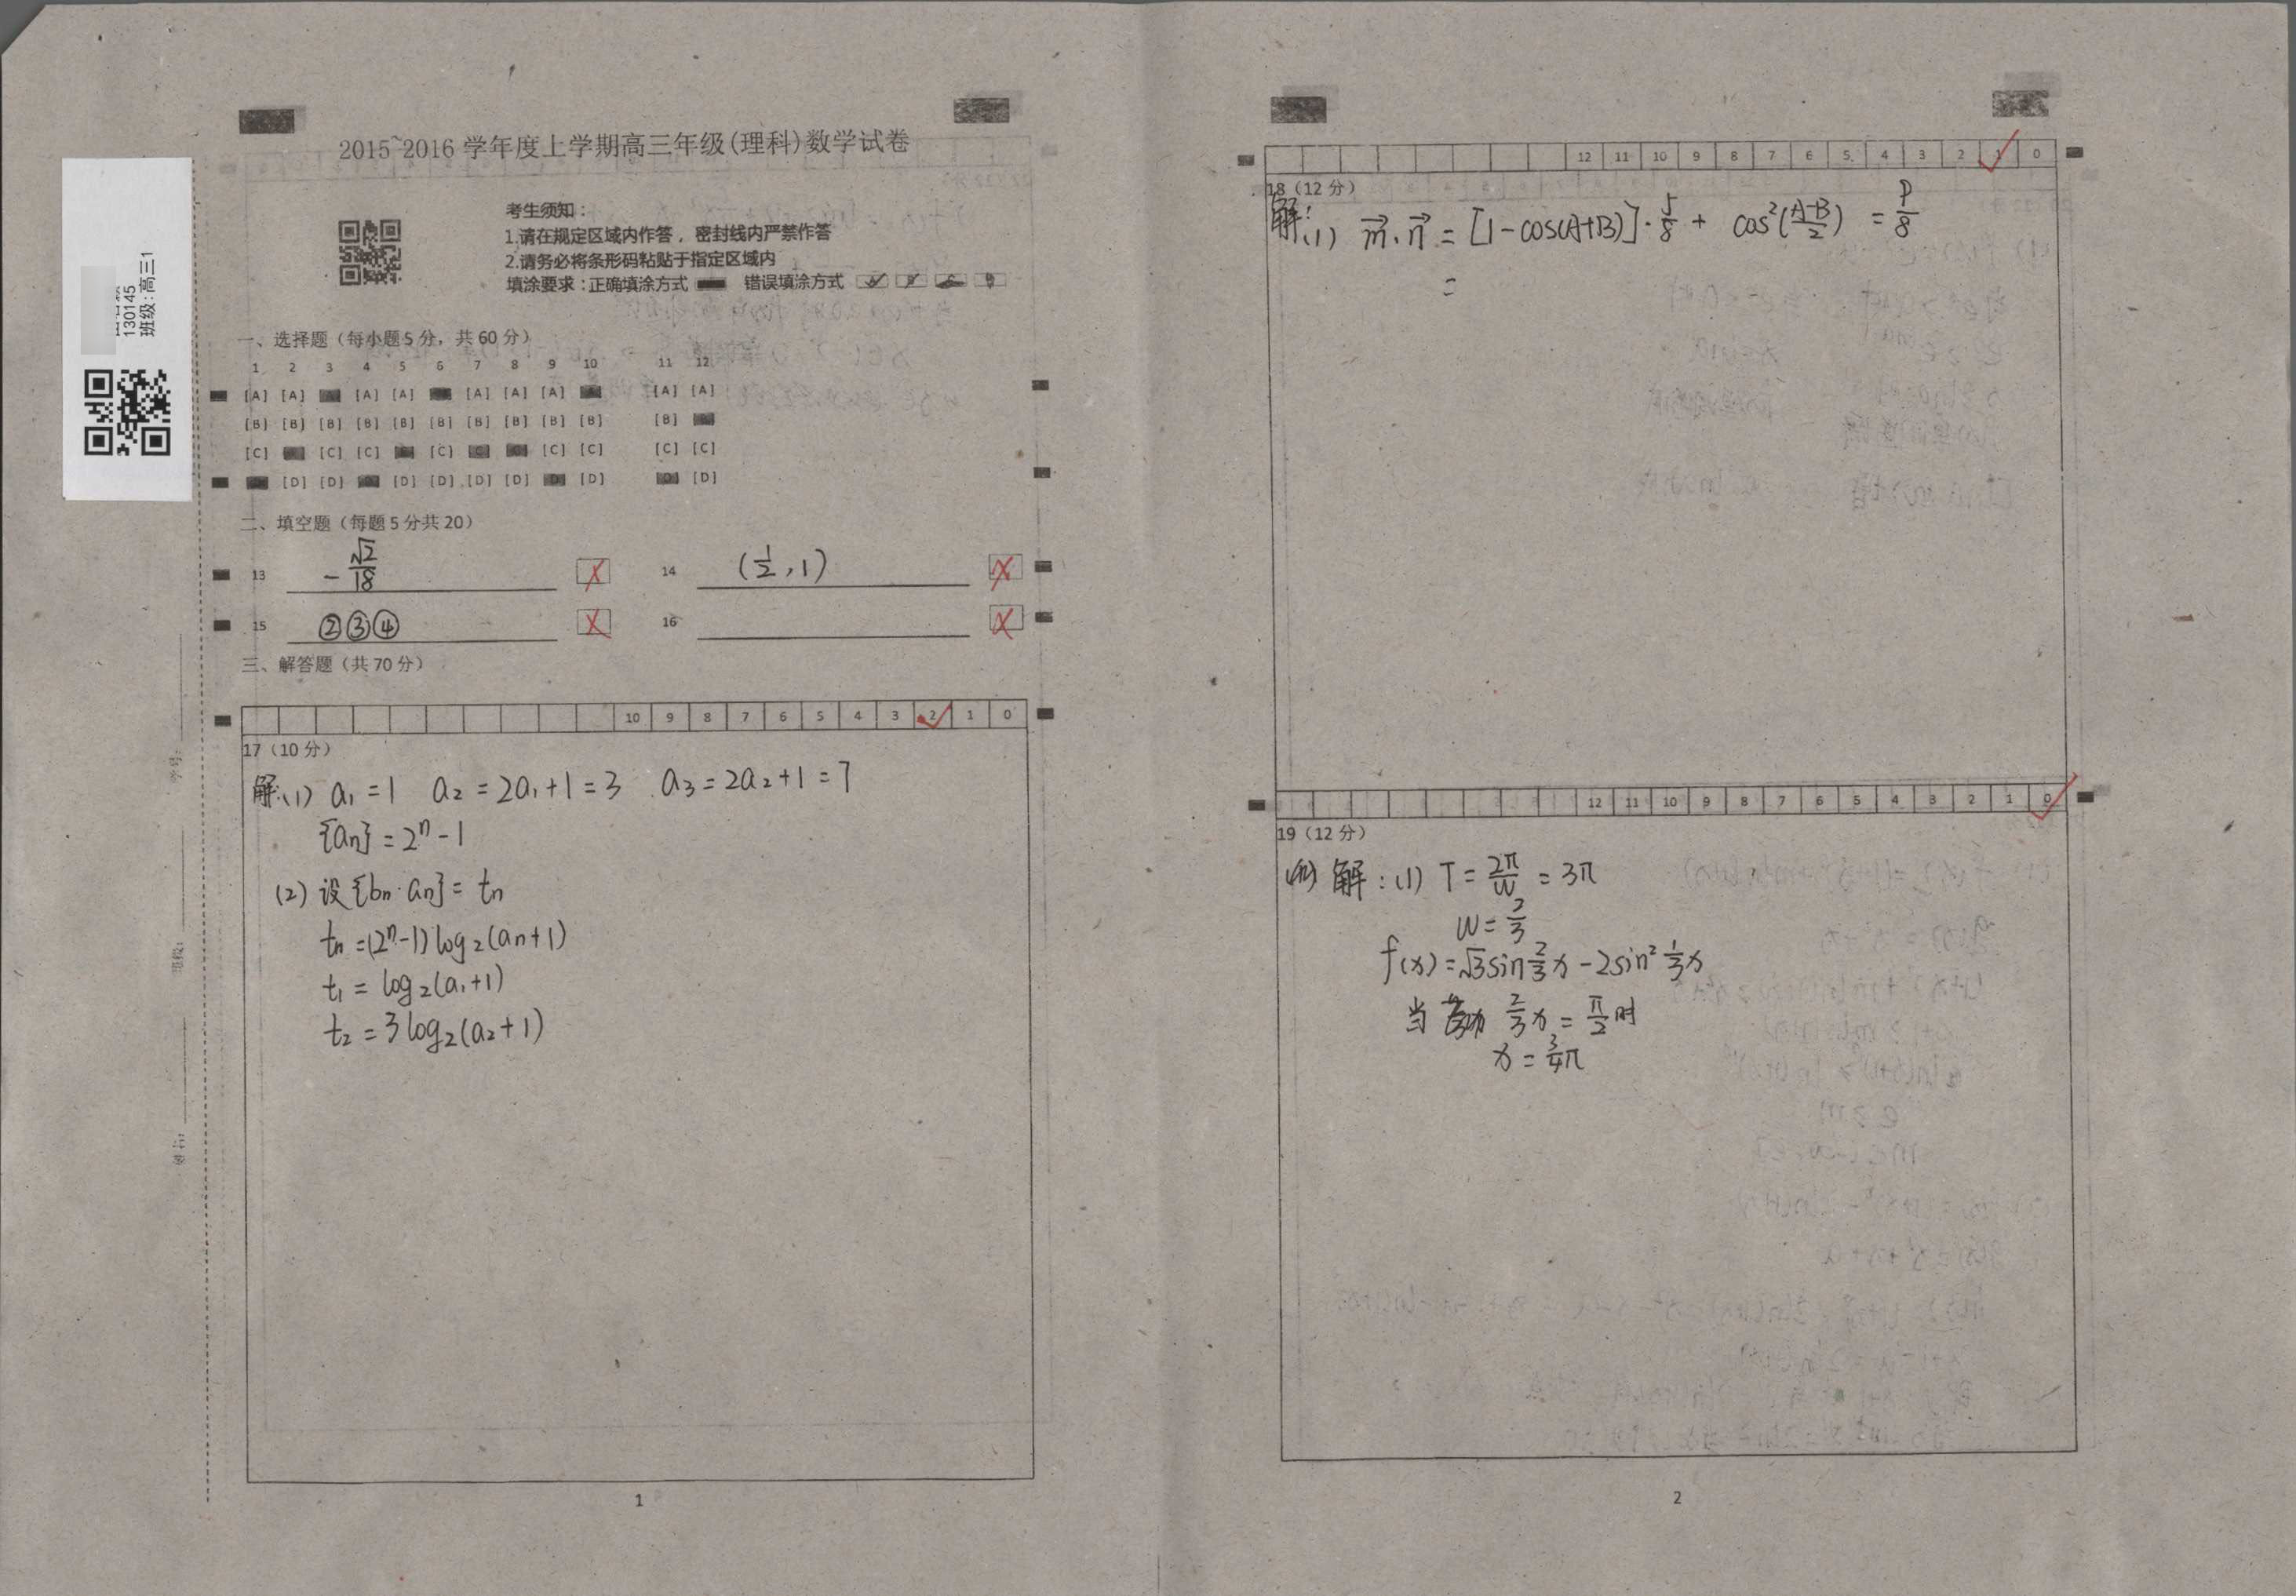 2015~2016 学年度上学期高三年级(理科)数学试卷
130145
班级:高三1
考生须知：
1.请在规定区域内作答，密封线内严禁作答
2.请务必将条形码粘贴于指定区域内
填涂要求：正确填涂方式 错误填涂方式
一、选择题（每小题5分，共60分）
1 2 3 4 5 6 7 8 9 10 11 12
[A] [A] [A] [A] [A] [A] [A] [A] [A]
[B] [B] [B] [B] [B] [B] [B] [B] [B] [B] [B]
[C] [C] [C] [C] [C] [C] [C] [C]
[D] [D] [D] [D] [D] [D] [D] [D]
二、填空题（每题5分共20）
13 -√2/18
14 (1/2,1)
15 ②③④
16
三、解答题（共70分）
10 9 8 7 6 5 4 3 2 1 0
17（10分）
解:(1) a₁=1 a₂=2a₁+1=3 a₃=2a₂+1=7
{an}=2ⁿ-1
(2) 设{bn·an}=tn
tn=(2ⁿ-1)log₂(an+1)
t₁=log₂(a₁+1)
t₂=3log₂(a₂+1)
学号:
班级:
姓名:
1
12 11 10 9 8 7 6 5 4 3 2 1 0
18（12分）
解:(1) m·n=[1-cos(A+B)]·5/8+cos²(A-B/2)=9/8
=
12 11 10 9 8 7 6 5 4 3 2 1 0
19（12分）
解:(1) T=2π/W=3π
W=2/3
f(x)=√3sin2/3x-2sin²1/3x
当 2/3x=π/2时
x=3/4π
2